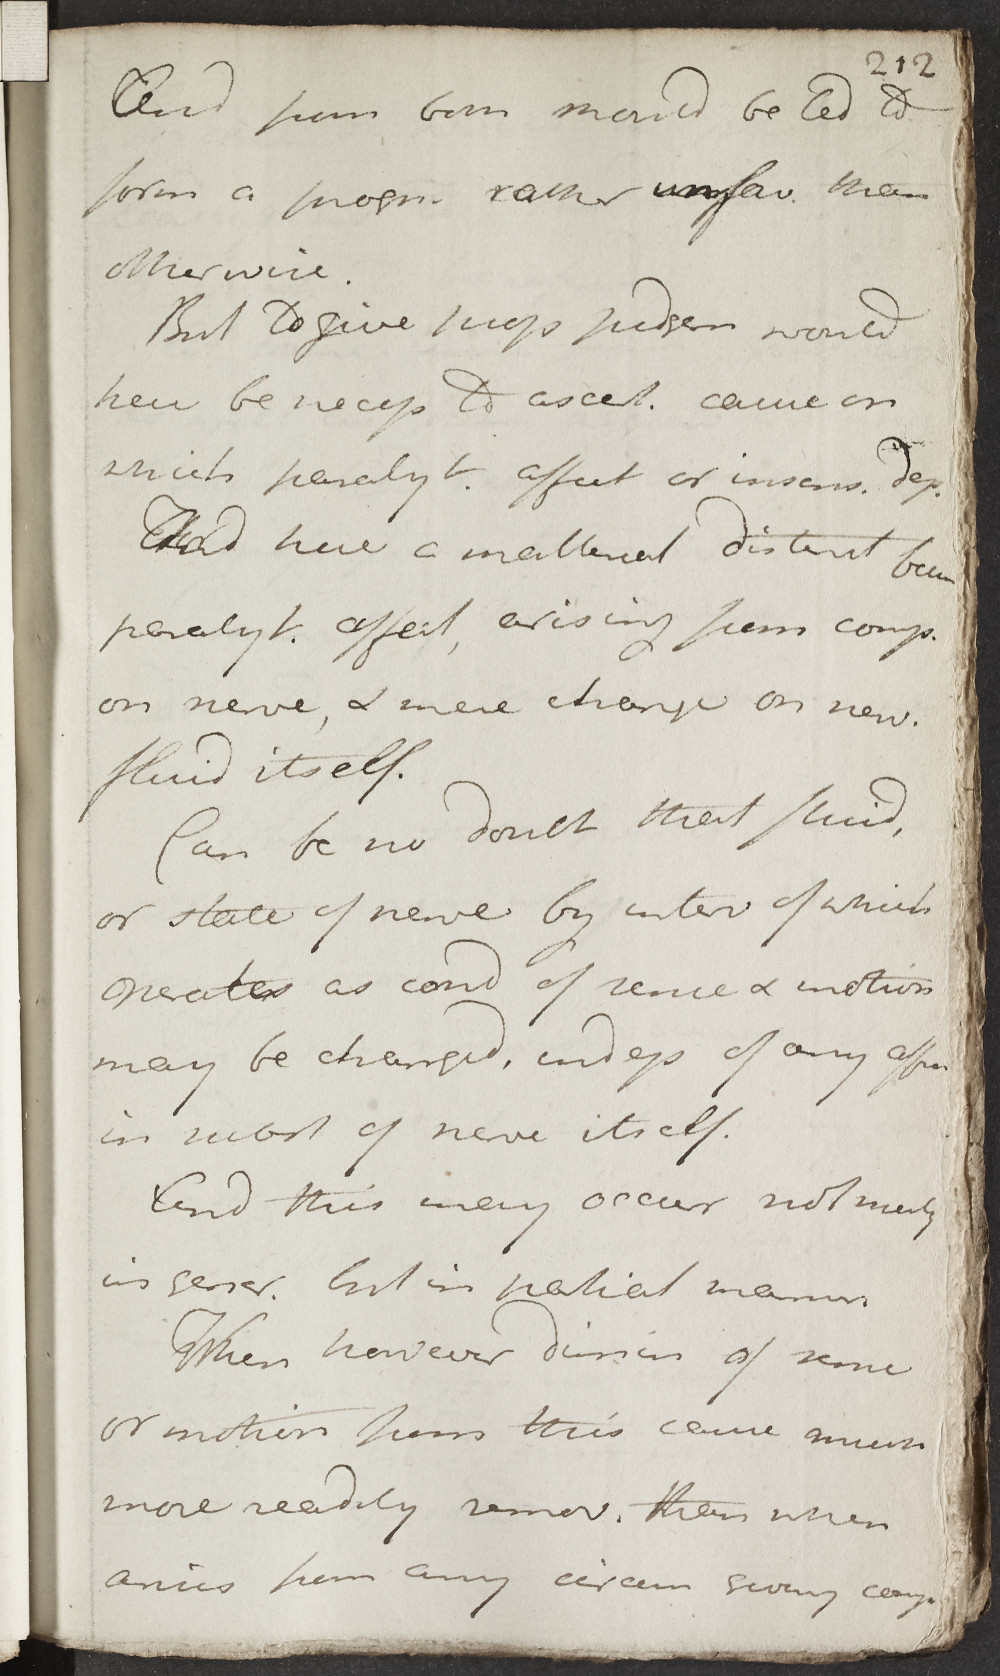 212
And from both should be led to
form a progn. rather unfav. than
otherwise.
But to give proper judgem would
here be necess to ascert. cause on
which paralyt. affect or insens. dep.
Had here a material distinct betw
paralyt. affect, arising from comp.
on nerve, & mere change on nerv.
fluid itself.
Can be no doubt that fluid,
or state of nerve by interv of which
operates as cond of sense & motion
may be changed, indep of any affec
in subst of nerve itself.
And this may occur not merely
in gener. but in partial manner.
When however dimin of sense
or motion from this cause much
more readily remov. than when
arises from any circum giving comp